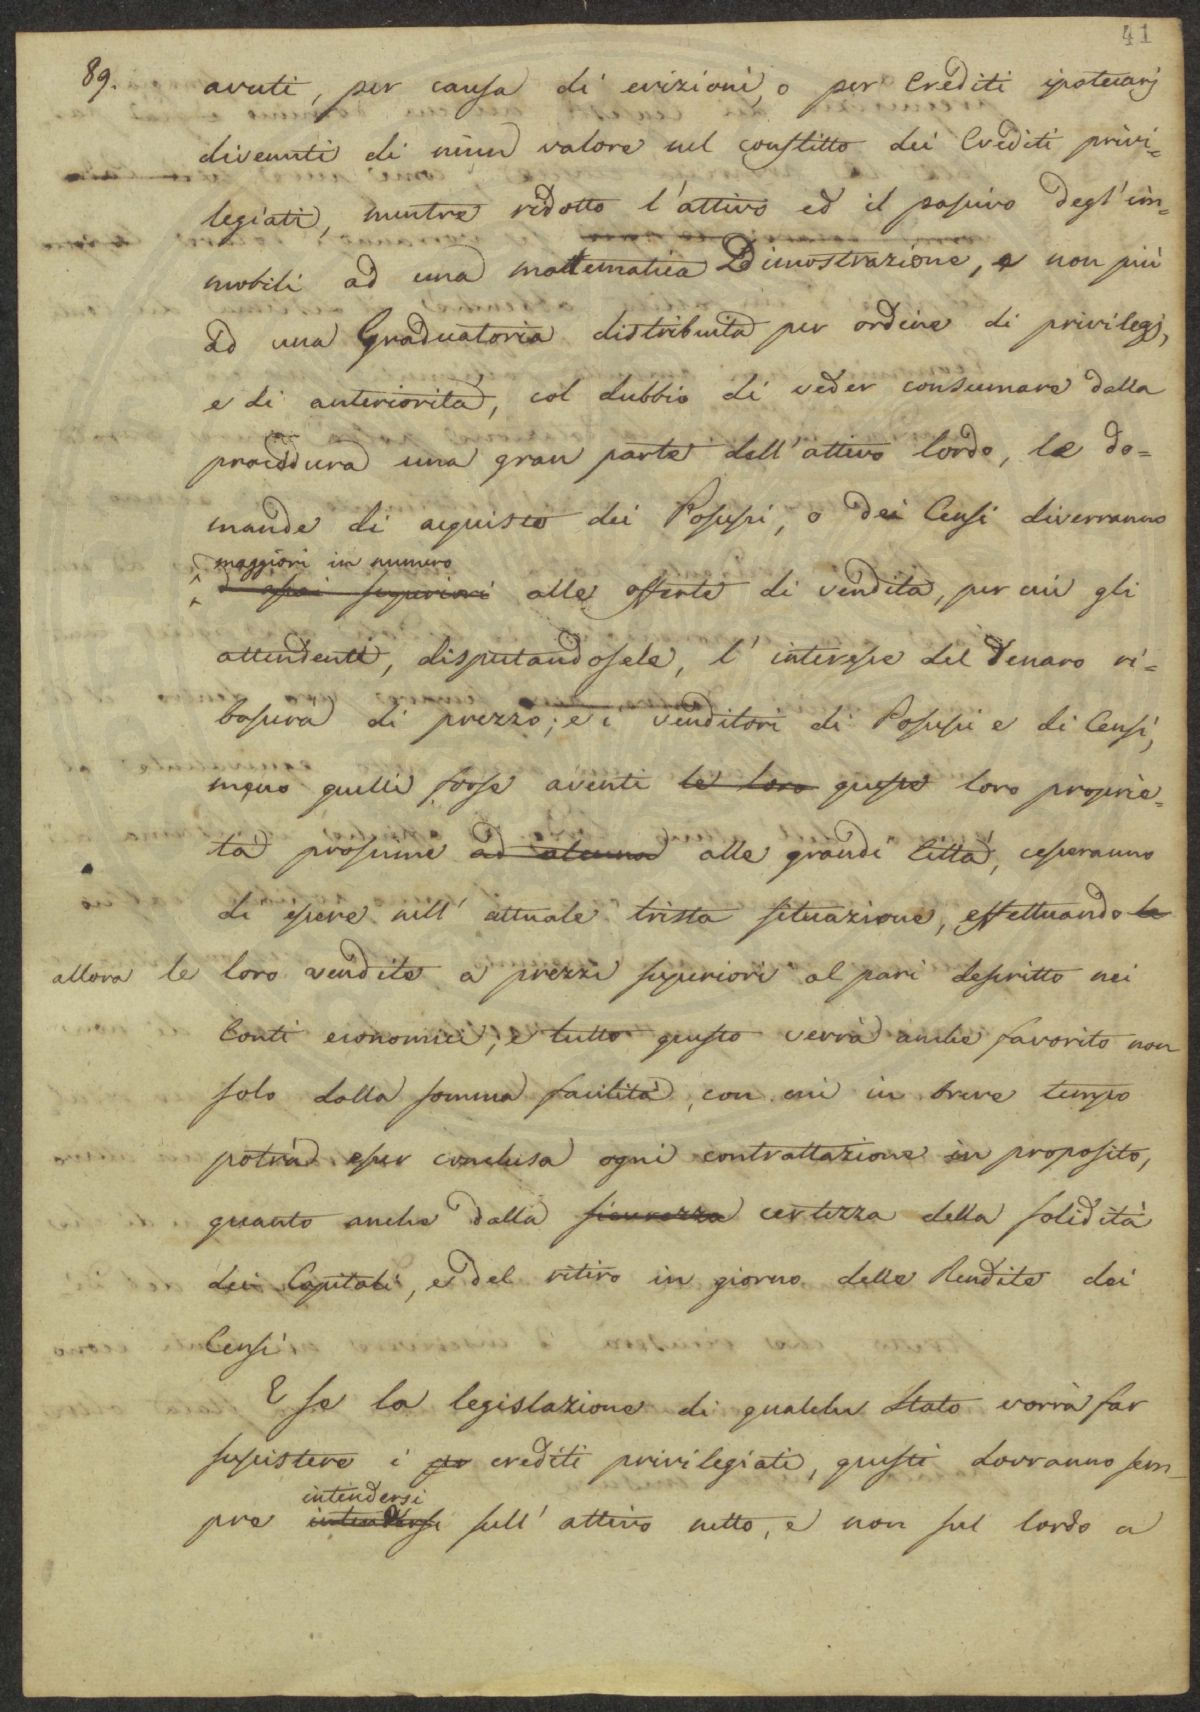 41
89.
avuti, per causa di evizioni, o per Crediti ipotecarj
divenuti di niun valore nel conflitto dei Crediti privi=
legiati, mentre ridotto l'attivo ed il passivo degl'im=
mobili ad una mattematica Dimostrazione, e non più
ad una Graduatoria distribuita per ordine di privilegj,
e di anteriorità, col dubbio di veder consumare dalla
procedura una gran parte dell'attivo lordo, le do=
mande di acquisto dei Possessi, o dei Censi diverranno
maggiori in numero
d'assai superiori alle offerte di vendita, per cui gli
attendenti, disputandosele, l'interesse del Denaro ri=
basserà di prezzo; e i venditori di Possessi e di Censi,
meno quelli forse aventi le loro queste loro proprie=
tà prossime ad alcuna alle grandi Città, cesseranno
di essere nell'attuale trista situazione, effettuando le
allora le loro vendite a prezzi superiori al pari descritto nei
Conti economici; e tutto questo verrà anche favorito non
solo dalla somma facilità, con cui in breve tempo
potrà esser conclusa ogni contrattazione in proposito,
quanto anche dalla sicurezza certezza della solidità
dei Capitali, e del ritiro in giorno delle Rendite dei
Censi
E se la legislazione di qualche Stato vorrà far
sussistere i crediti privilegiati, questi dovranno sem=
intendersi
pre intendersi sull'attivo netto, e non sul lordo a